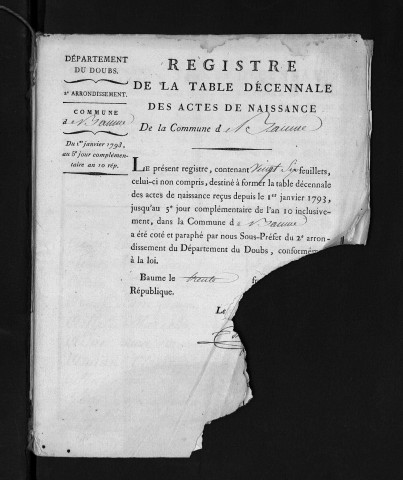 DÉPARTEMENT
DU DOUBS.
2e ARRONDISSEMENT.
COMMUNE
d
Du 1er janvier 1793,
au 5e jour complémen-
taire an 10 rép.
REGISTRE
DE LA TABLE DÉCENNALE
DES ACTES DE NAISSANCE
De la Commune d
LE présent registre, contenant Vingt Six feuillets,
celui-ci non compris, destiné à former la table décennale
des actes de naissance reçus depuis le 1er janvier 1793,
jusqu'au 5e jour complémentaire de l'an 10 inclusive-
ment, dans la Commune d
a été coté et paraphé par nous Sous-Préfet du 2e arron-
dissement du Département du Doubs, conformém
à la loi.
Baume le trente
République.
Le